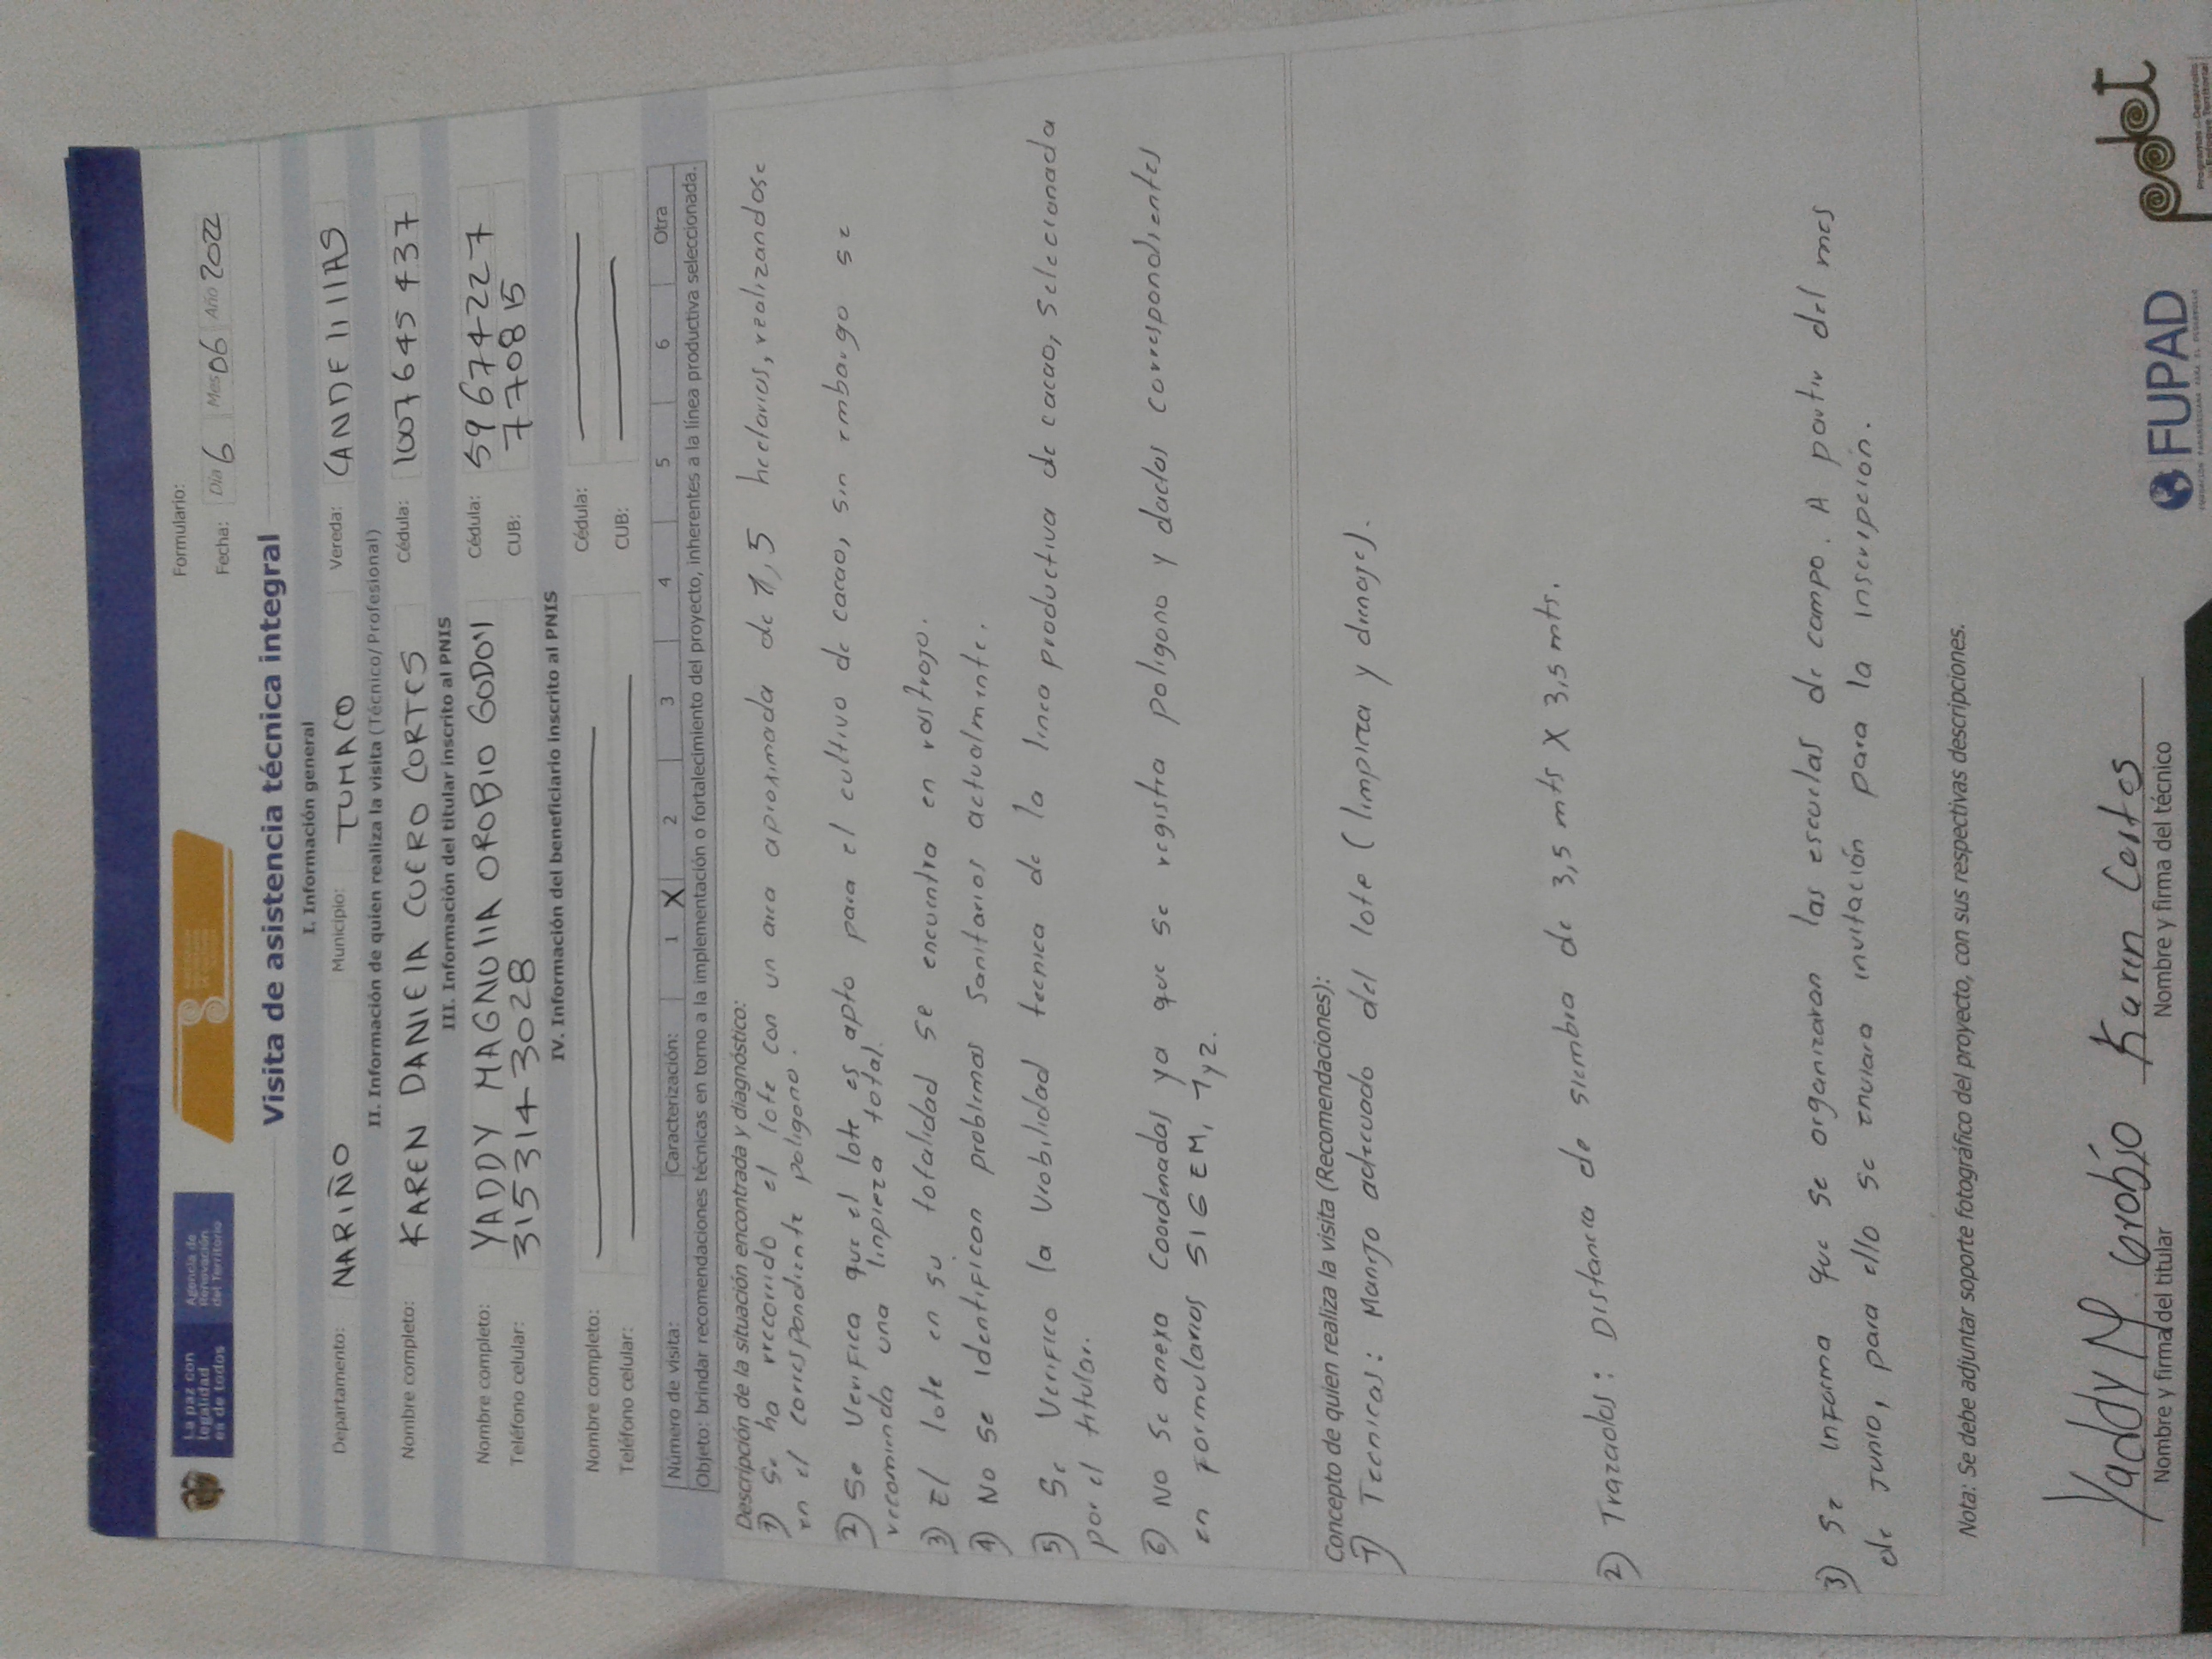 La paz con
legalidad
es de todos
Agencia de
Renovación
del Territorio
Formulario:
Fecha: Día 6 Mes 06 Año 2022
Visita de asistencia técnica integral
I. Información general
Departamento: NARIÑO Municipio: TUMACO Vereda: CANDELILLAS
II. Información de quien realiza la visita (Técnico/Profesional)
Nombre completo: KAREN DANIELA CUERO CORTES Cédula: 1007645437
III. Información del titular inscrito al PNIS
Nombre completo: YADDY MAGNOLIA OROBIO GODOY Cédula: 59674227
Teléfono celular: 3153143028 CUB: 770815
IV. Información del beneficiario inscrito al PNIS
Nombre completo: Cédula:
Teléfono celular: CUB:
Número de visita: Caracterización: 1 X 2 3 4 5 6 Otra
Objeto: brindar recomendaciones técnicas en torno a la implementación o fortalecimiento del proyecto, inherentes a la línea productiva seleccionada.
Descripción de la situación encontrada y diagnóstico:
1) Se ha recorrido el lote con un area aproximada de 1,5 hectarias, realizandose
en el correspondiente poligono.
2) Se verifica que el lote es apto para el cultivo de cacao, sin embargo se
recomienda una limpieza total.
3) El lote en su totalidad se encuentra en rastrojo.
4) No se identifican problemas sanitarios actualmente.
5) Se verifico la viabilidad tecnica de la linea productiva de cacao, seleccionada
por el titular.
6) No se anexa coordenadas ya que se registra poligono y dactos correspondientes
en formularios SIGEM, 1 y 2.
Concepto de quien realiza la visita (Recomendaciones):
1) Tecnicas: Manejo adecuado del lote (limpieza y drenaje).
2) Trazados: Distancia de siembra de 3,5 mts X 3,5 mts.
3) Se informa que se organizaran las escuelas de campo. A partir del mes
de junio, para ello se enviara invitación para la inscripción.
Nota: Se debe adjuntar soporte fotográfico del proyecto, con sus respectivas descripciones.
Yaddy M orobio
Nombre y firma del titular
Karen Cortes
Nombre y firma del técnico
FUPAD
FUNDACIÓN PANAMERICANA PARA EL DESARROLLO
pdet
Programas de Desarrollo
con Enfoque Territorial